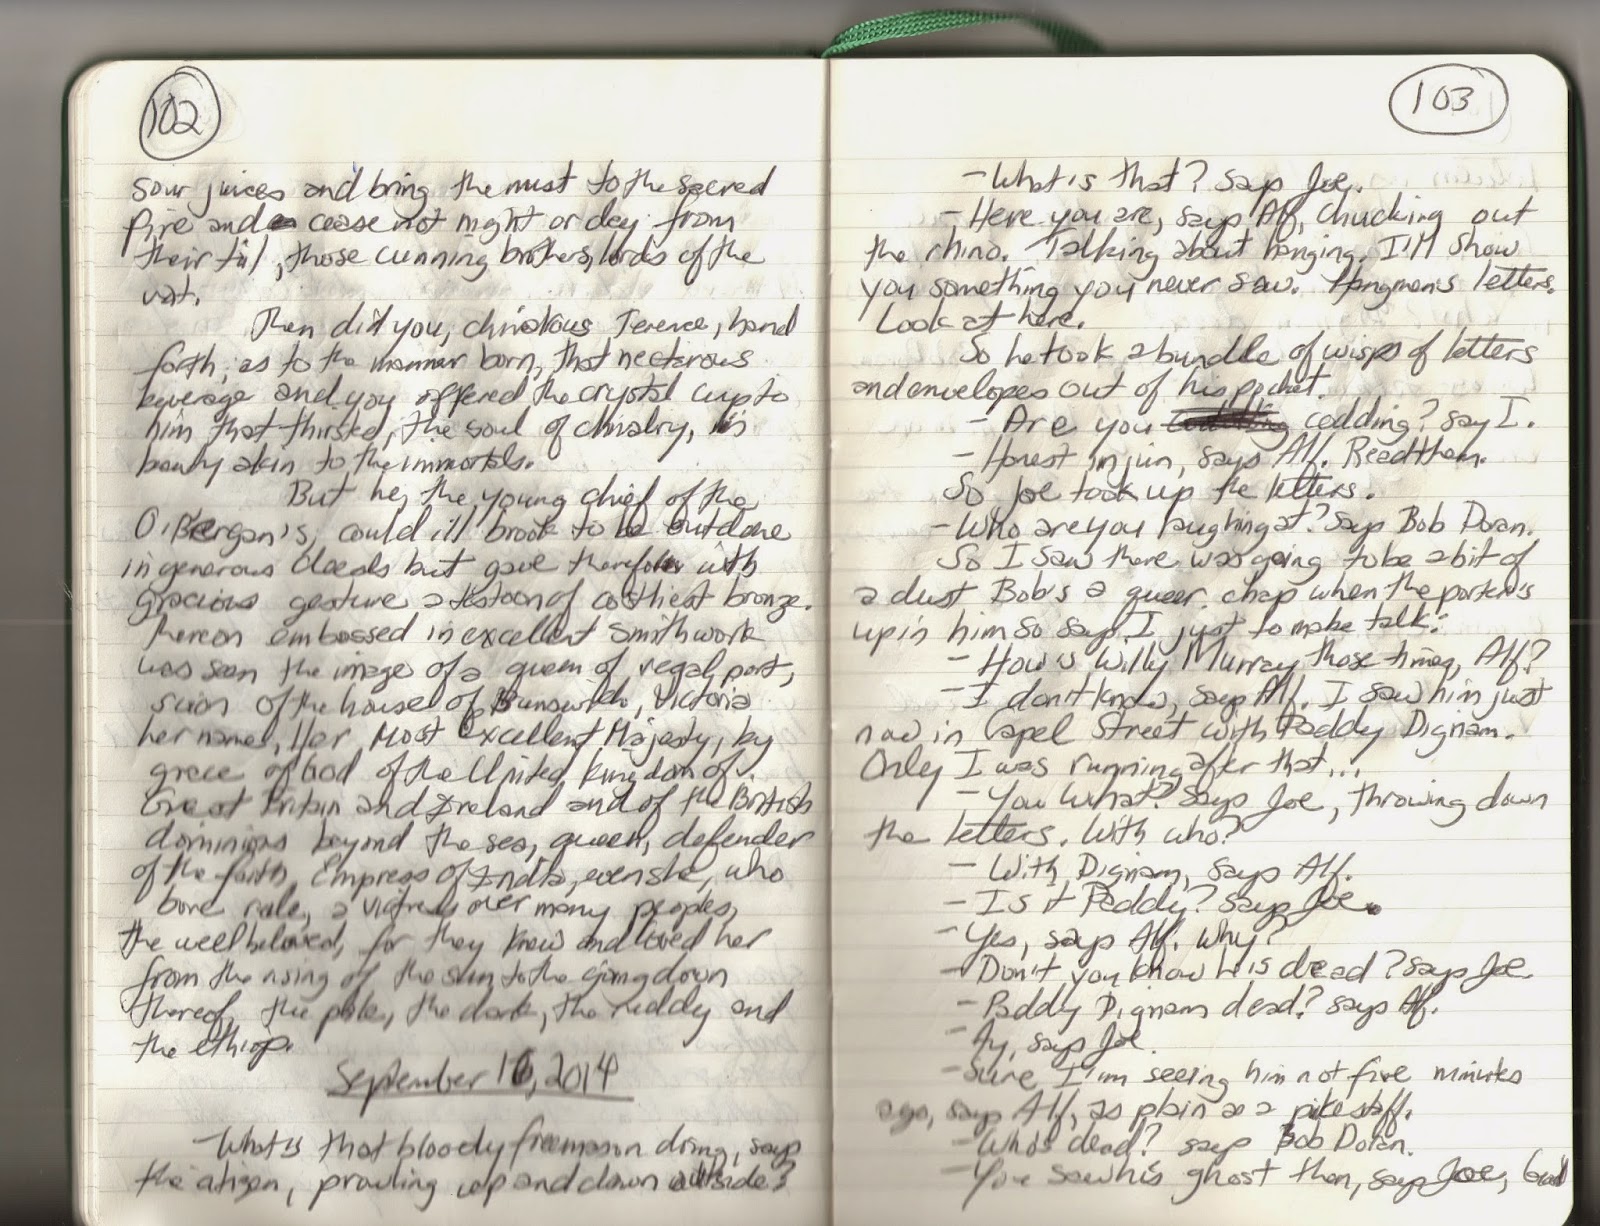 102
sour juices and bring the must to the sacred
fire and cease not night or day from
their toil, those cunning brothers, lords of the
vat.
Then did you, chivalrous Terence, hand
forth, as to the manner born, that nectarous
beverage and you offered the crystal cup to
him that thirsted, the soul of chivalry, in
beauty akin to the immortals.
But he, the young chief of the
O'Bergan's, could ill brook to be outdone
in generous deeds but gave therefor with
gracious gesture a testoon of costliest bronze.
Thereon embossed in excellent smithwork
was seen the image of a queen of regal port,
scion of the house of Brunswick, Victoria
her name, Her Most Excellent Majesty, by
grace of God of the United Kingdom of
Great Britain and Ireland and of the British
dominions beyond the sea, queen, defender
of the faith, Empress of India, even she, who
bore rule, a victress over many peoples,
the wellbeloved, for they knew and loved her
from the rising of the sun to the going down
thereof, the pale, the dark, the ruddy and
the ethiop.
September 16, 2014
-What is that bloody freemason doing, says
the citizen, prowling up and down outside?
103
-What is that? says Joe.
-Here you are, says Alf, chucking out
the rhino. Talking about hanging. I'll show
you something you never saw. Hangman's letters.
Look at here.
So he took a bundle of wisps of letters
and envelopes out of his pocket.
-Are you codding? say I.
-Honest injun, says Alf. Read them.
So Joe took up the letters.
-Who are you laughing at? says Bob Doran.
So I saw there was going to be a bit of
a dust Bob's a queer chap when the porter's
up in him so says I just to make talk:
-How's Willy Murray those times, Alf?
-I don't know, says Alf. I saw him just
now in Capel Street with Paddy Dignam.
Only I was running after that...
-You what? says Joe, throwing down
the letters. With who?
-With Dignam, says Alf.
-Is it Paddy? says Joe.
-Yes, says Alf. Why?
-Don't you know he is dead? says Joe
-Paddy Dignam dead? says Alf.
-Ay, says Joe.
-Sure I'm seeing him not five minutes
ago, says Alf, as plain as a pikestaff.
-Who's dead? says Bob Doran.
-You saw his ghost then, says Joe, God